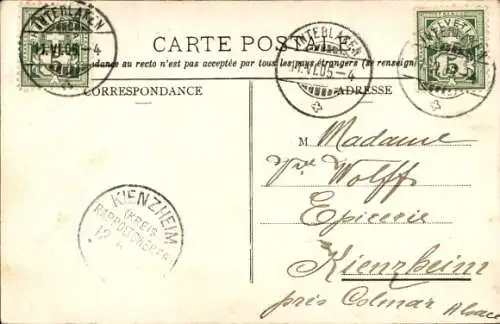 INTERLAKEN
11.VI.05-4
CARTE POSTALE
INTERLAKEN
11.VI.05-4
HELVETIA
5
ndance au recto n'est pas acceptée par tous les pays étrangers (se renseign
CORRESPONDANCE
ADRESSE
M Madame
Vve Wolff
Epicerie
Kienzheim
près Colmar Alsace
KIENZHEIM
(KREIS
RAPPOLTSWEILER)
12